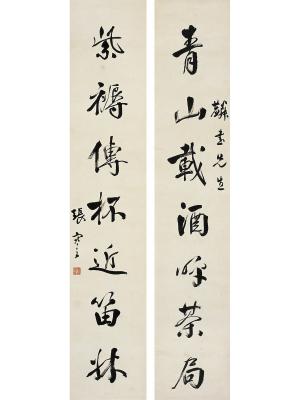 青山載酒呼茶局
麟書先生
紫褥傳杯近笛牀
張寒